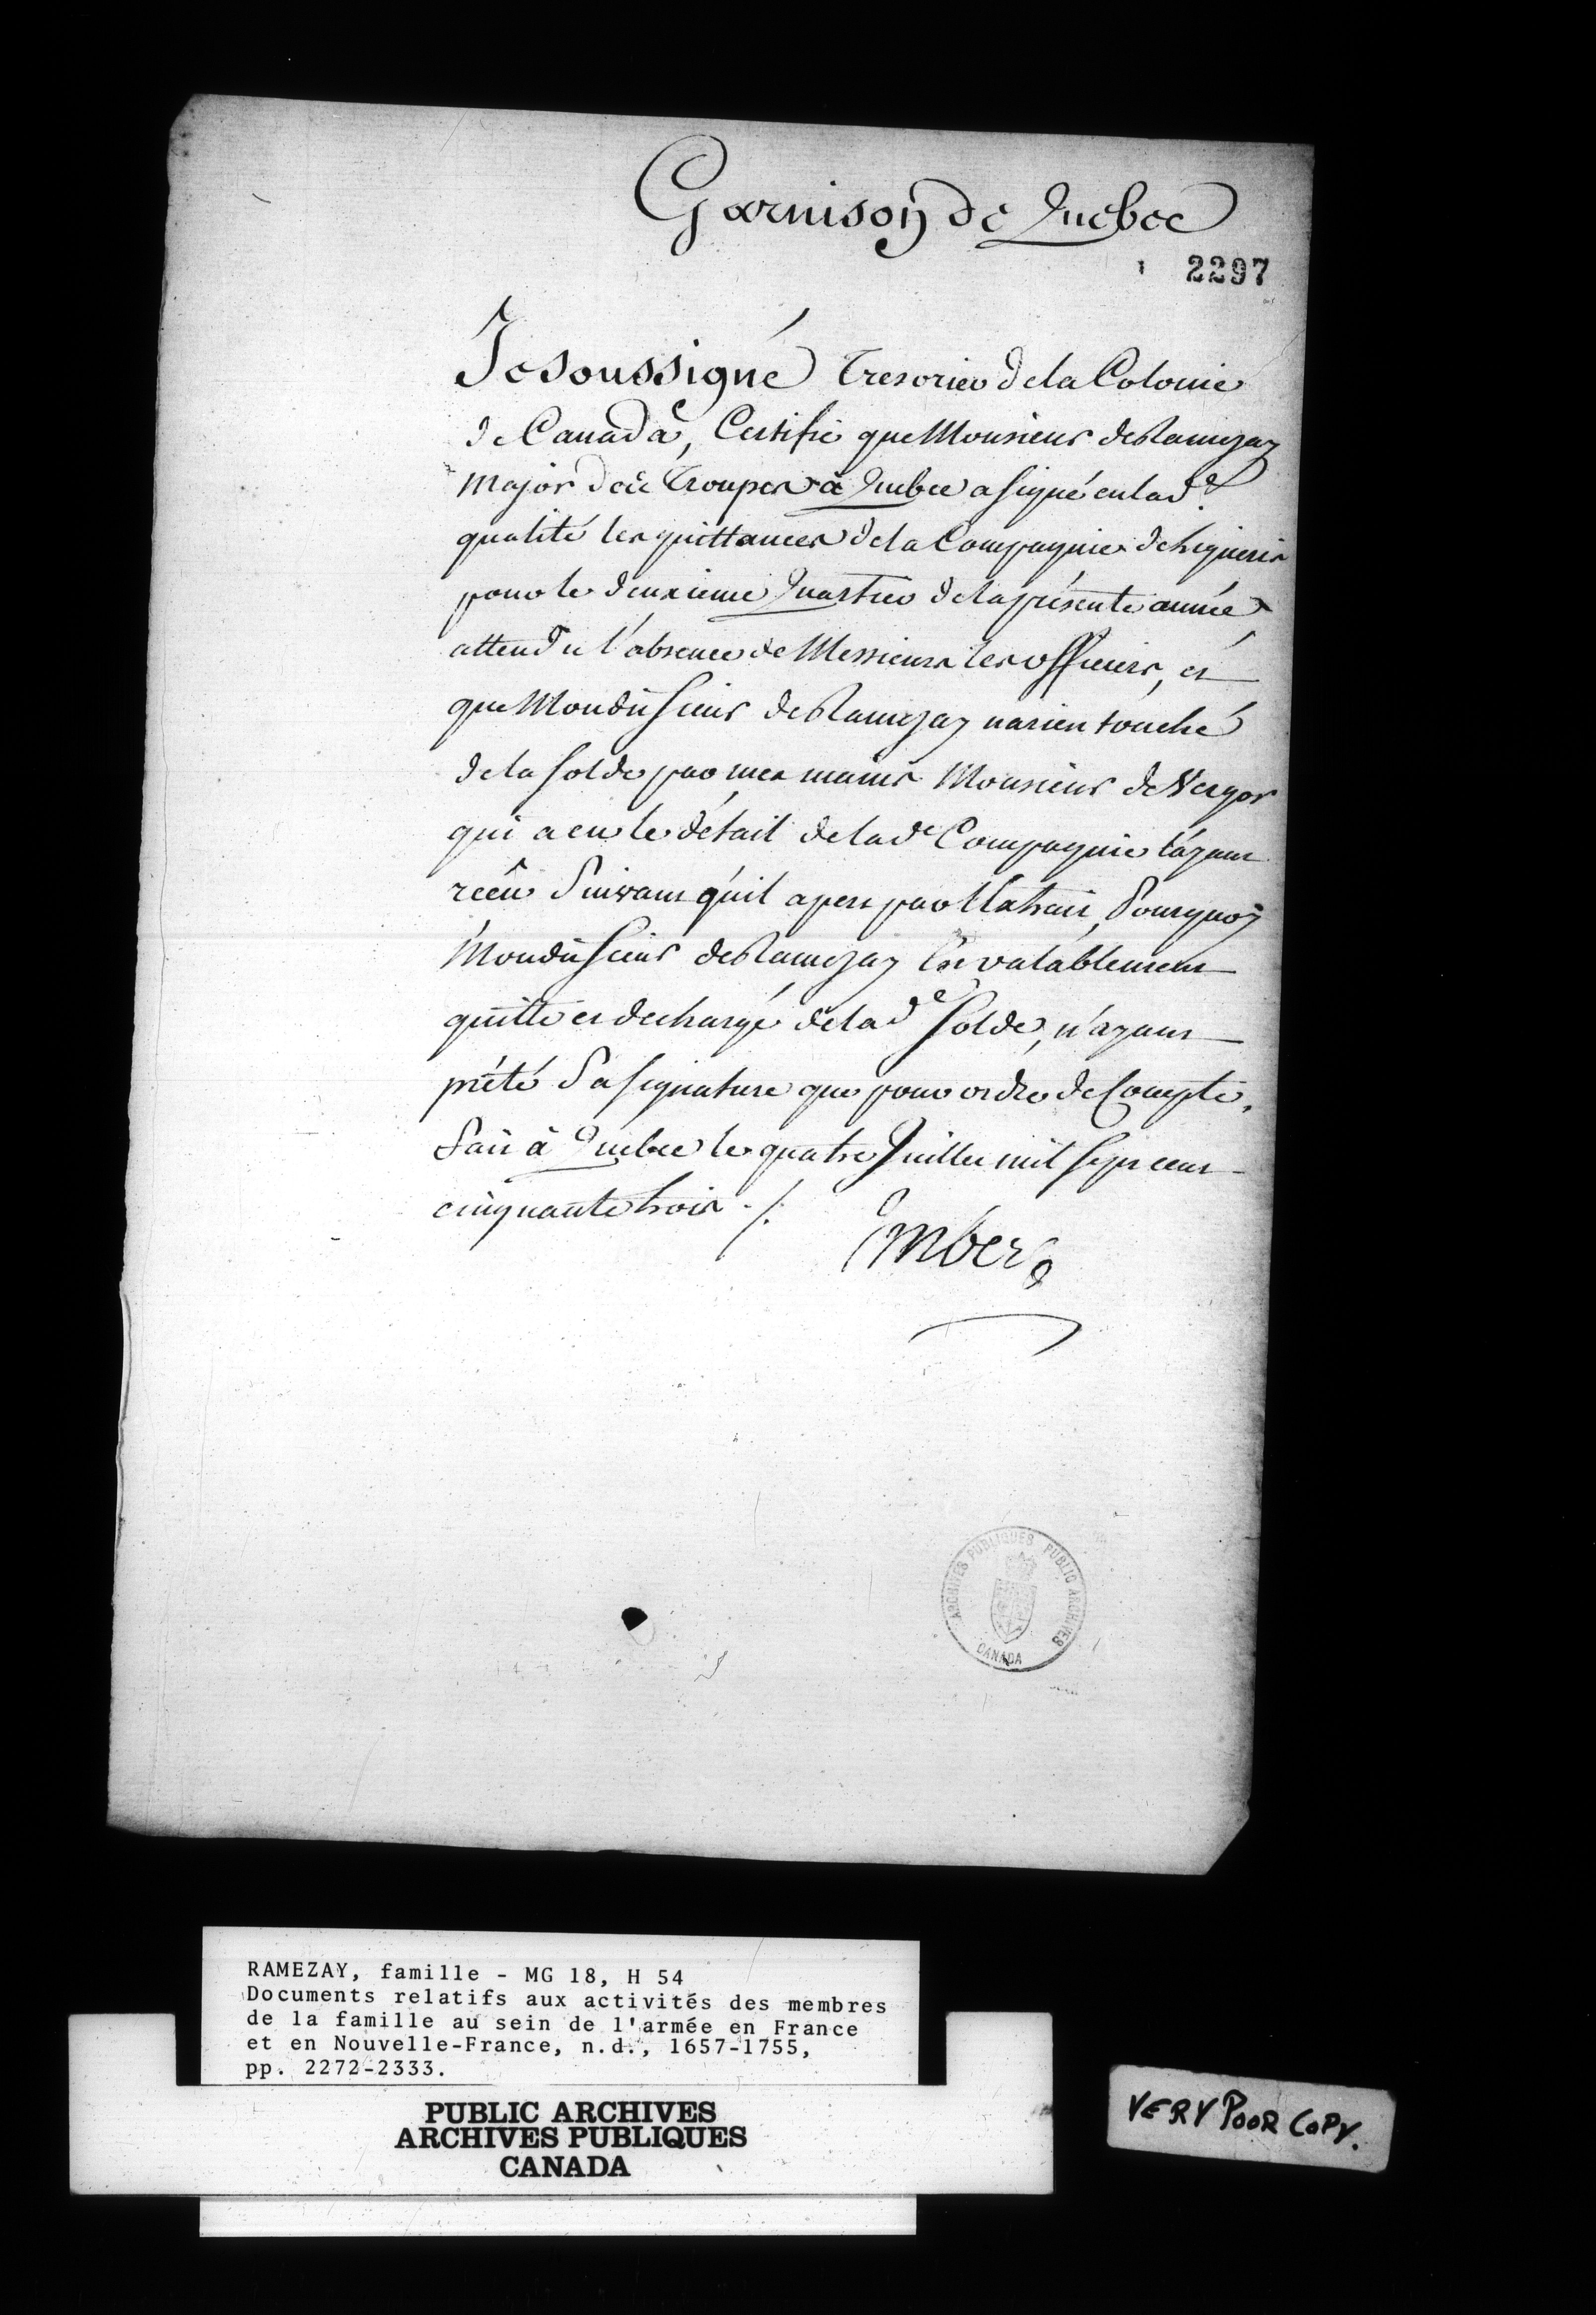 Garnison de Quebec
2297
Je soussigné Tresorier de la Colonie
de Canada, Certifie que Monsieur de Ramezay
Major des Troupes à Quebec a signé en lad.e
qualité les quittances de la Compagnie de Ligneris
pour le deuxieme Quartier de la présente année
attendu l'absence de Messieurs les officiers, et
que Mondit Sieur de Ramezay na rien touché
de la solde par mes mains Monsieur de Vergor
qui a eu le détail de lad.e Compagnie l'ayant
reçû Suivant qu'il apert par l'Extrait, Pourquoy
Mondit Sieur de Ramezay En valablement
quitte et dechargé de lad.e Solde, n'ayant
prété Sa signature que pour ordre de Compte,
fait à Quebec le quatre Juillet mil sept cent
cinquante trois ./.
Imbert
ARCHIVES PUBLIQUES PUBLIC ARCHIVES
CANADA
RAMEZAY, famille - MG 18, H 54
Documents relatifs aux activités des membres
de la famille au sein de l'armée en France
et en Nouvelle-France, n.d., 1657-1755,
pp. 2272-2333.
PUBLIC ARCHIVES
ARCHIVES PUBLIQUES
CANADA
VERY POOR COPY.